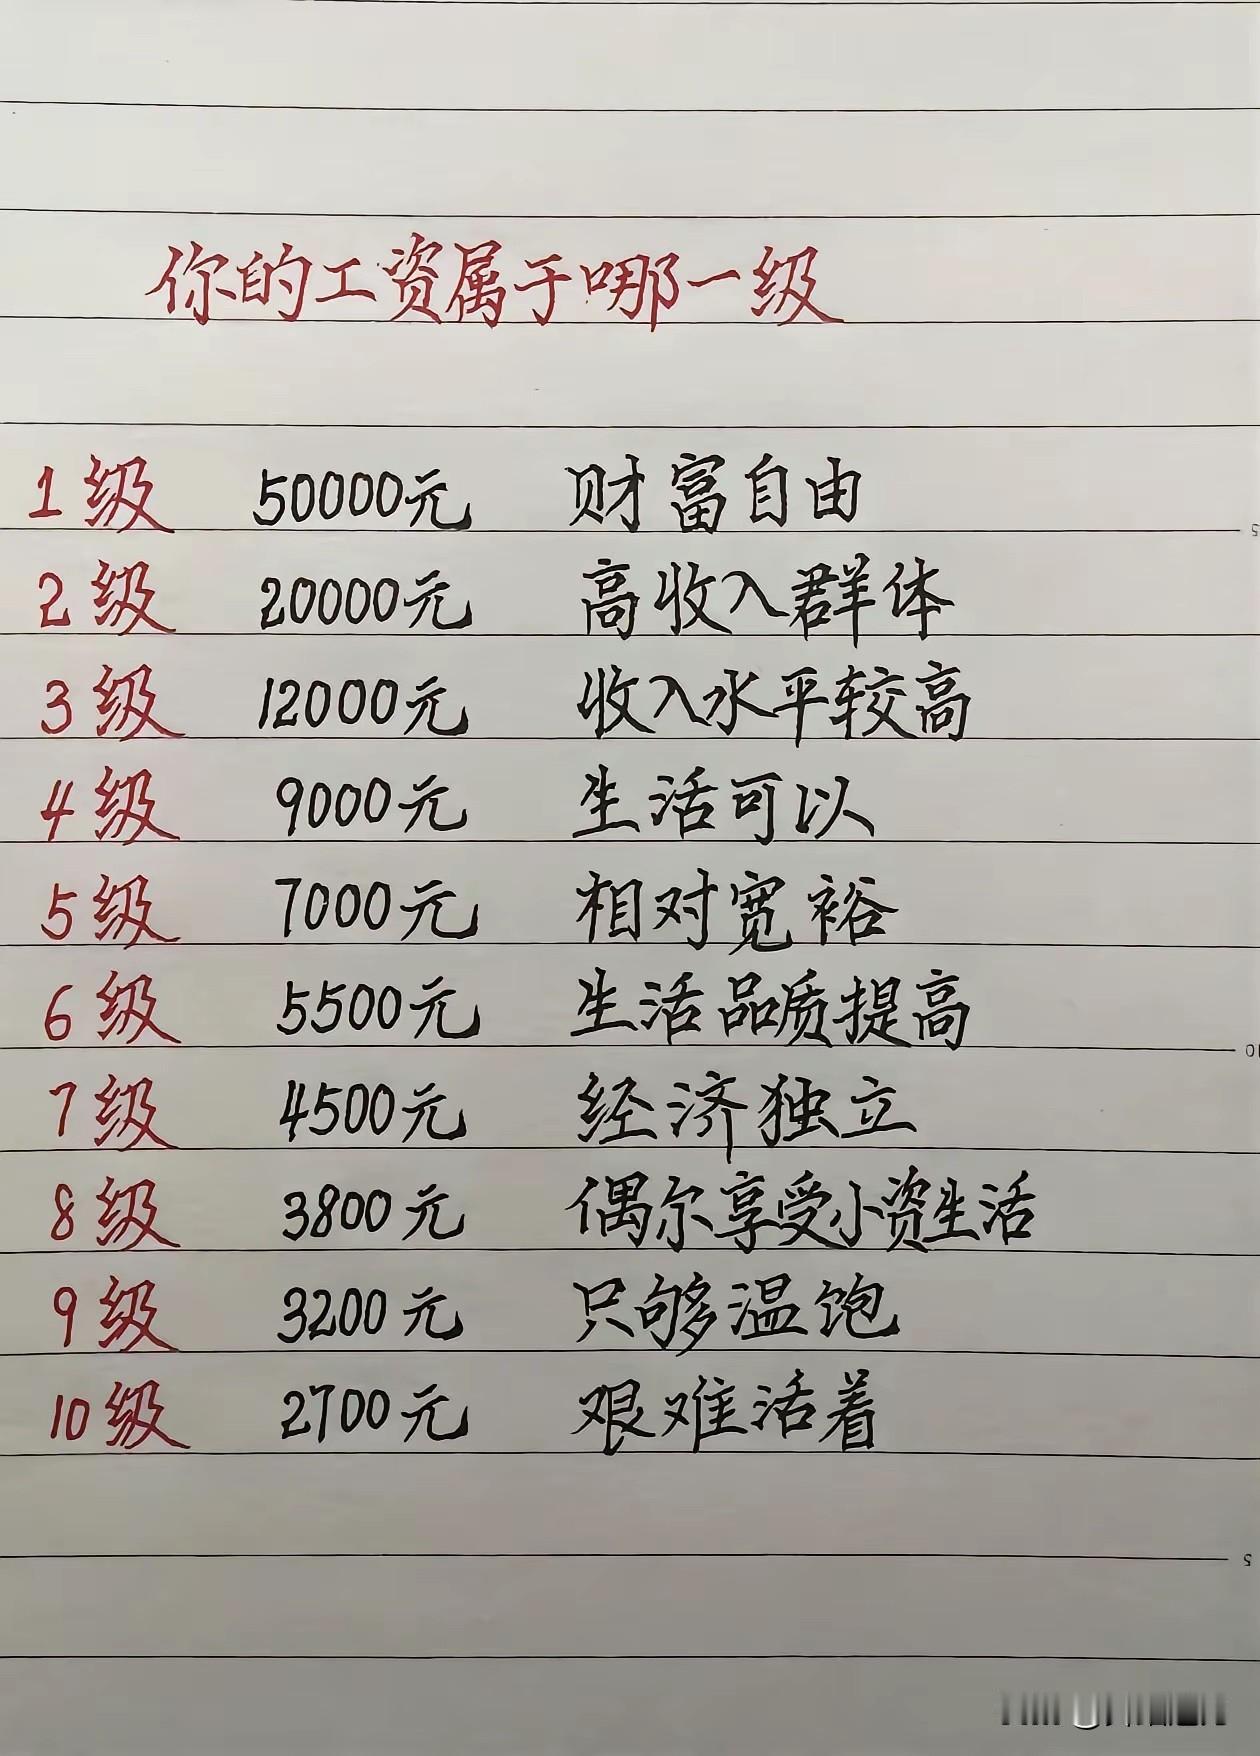 你的工资属于哪一级
1级 50000元 财富自由
2级 20000元 高收入群体
3级 12000元 收入水平较高
4级 9000元 生活可以
5级 7000元 相对宽裕
6级 5500元 生活品质提高
7级 4500元 经济独立
8级 3800元 偶尔享受小资生活
9级 3200元 只够温饱
10级 2700元 艰难活着